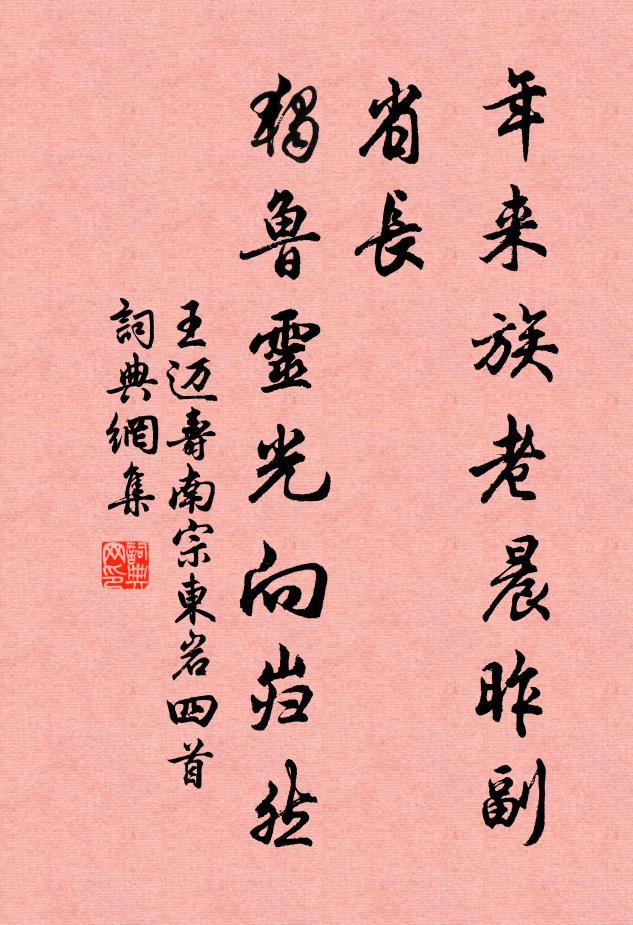 年来族老晨昨副
省長
獨魯靈光向岿然
王迈壽南宗東岩四首
詞典網集
詞典网印